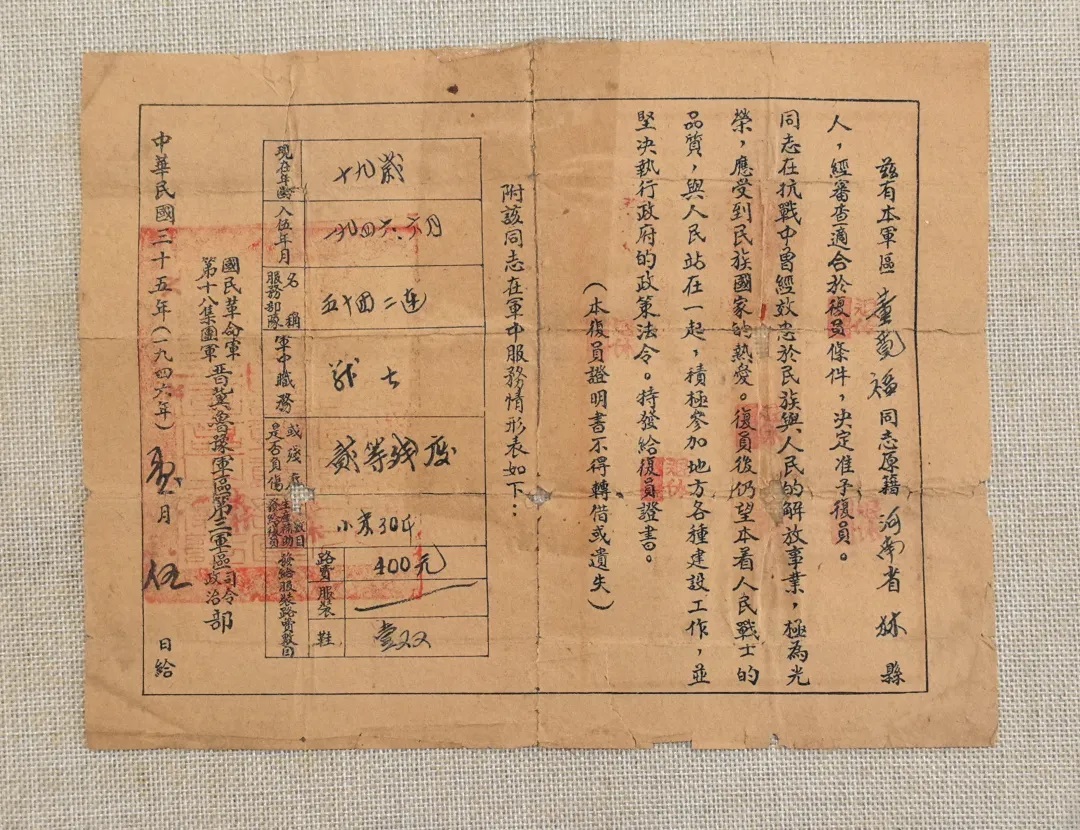 茲有本軍區 福同志原籍河南省林縣
人，經審查適合於復員條件，决定准予復員。
同志在抗戰中曾經效忠於民族與人民的解放事業，極為光
榮，應受到民族國家的熱愛。復員後仍望本着人民戰士的
品質，與人民站在一起，積極參加地方各種建設工作，並
堅决執行政府的政策法令。特發給復員證書。
（本復員證明書不得轉借或遺失）
附該同志在軍中服務情形表如下：
現在年齡 十九歲
入伍年月 一九四六、六月
服務部隊名稱 五十四二連
軍中職務 战士
是否負傷或殘廢 貳等残废
小米30斤
發給服裝路費數目
路費 400元
服裝
鞋 壹双
國民革命軍
第十八集團軍
晋冀魯豫軍區第二軍區
司令
政治
部
中華民國三十五年（一九四六年） 月 伍 日給